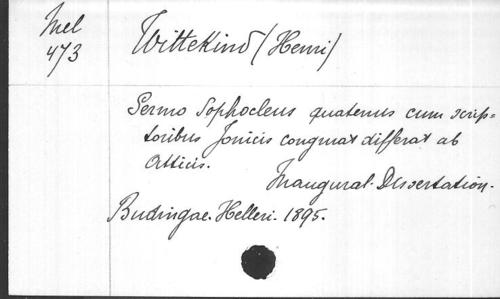 Mel
473
Wittekind (Henri)
Sermo Sophocleus quatenus cum scrip=
toribus Jonicis congruat differat ab
Atticis.
Inaugural-Dissertation.
Budingae. Helleri. 1895.